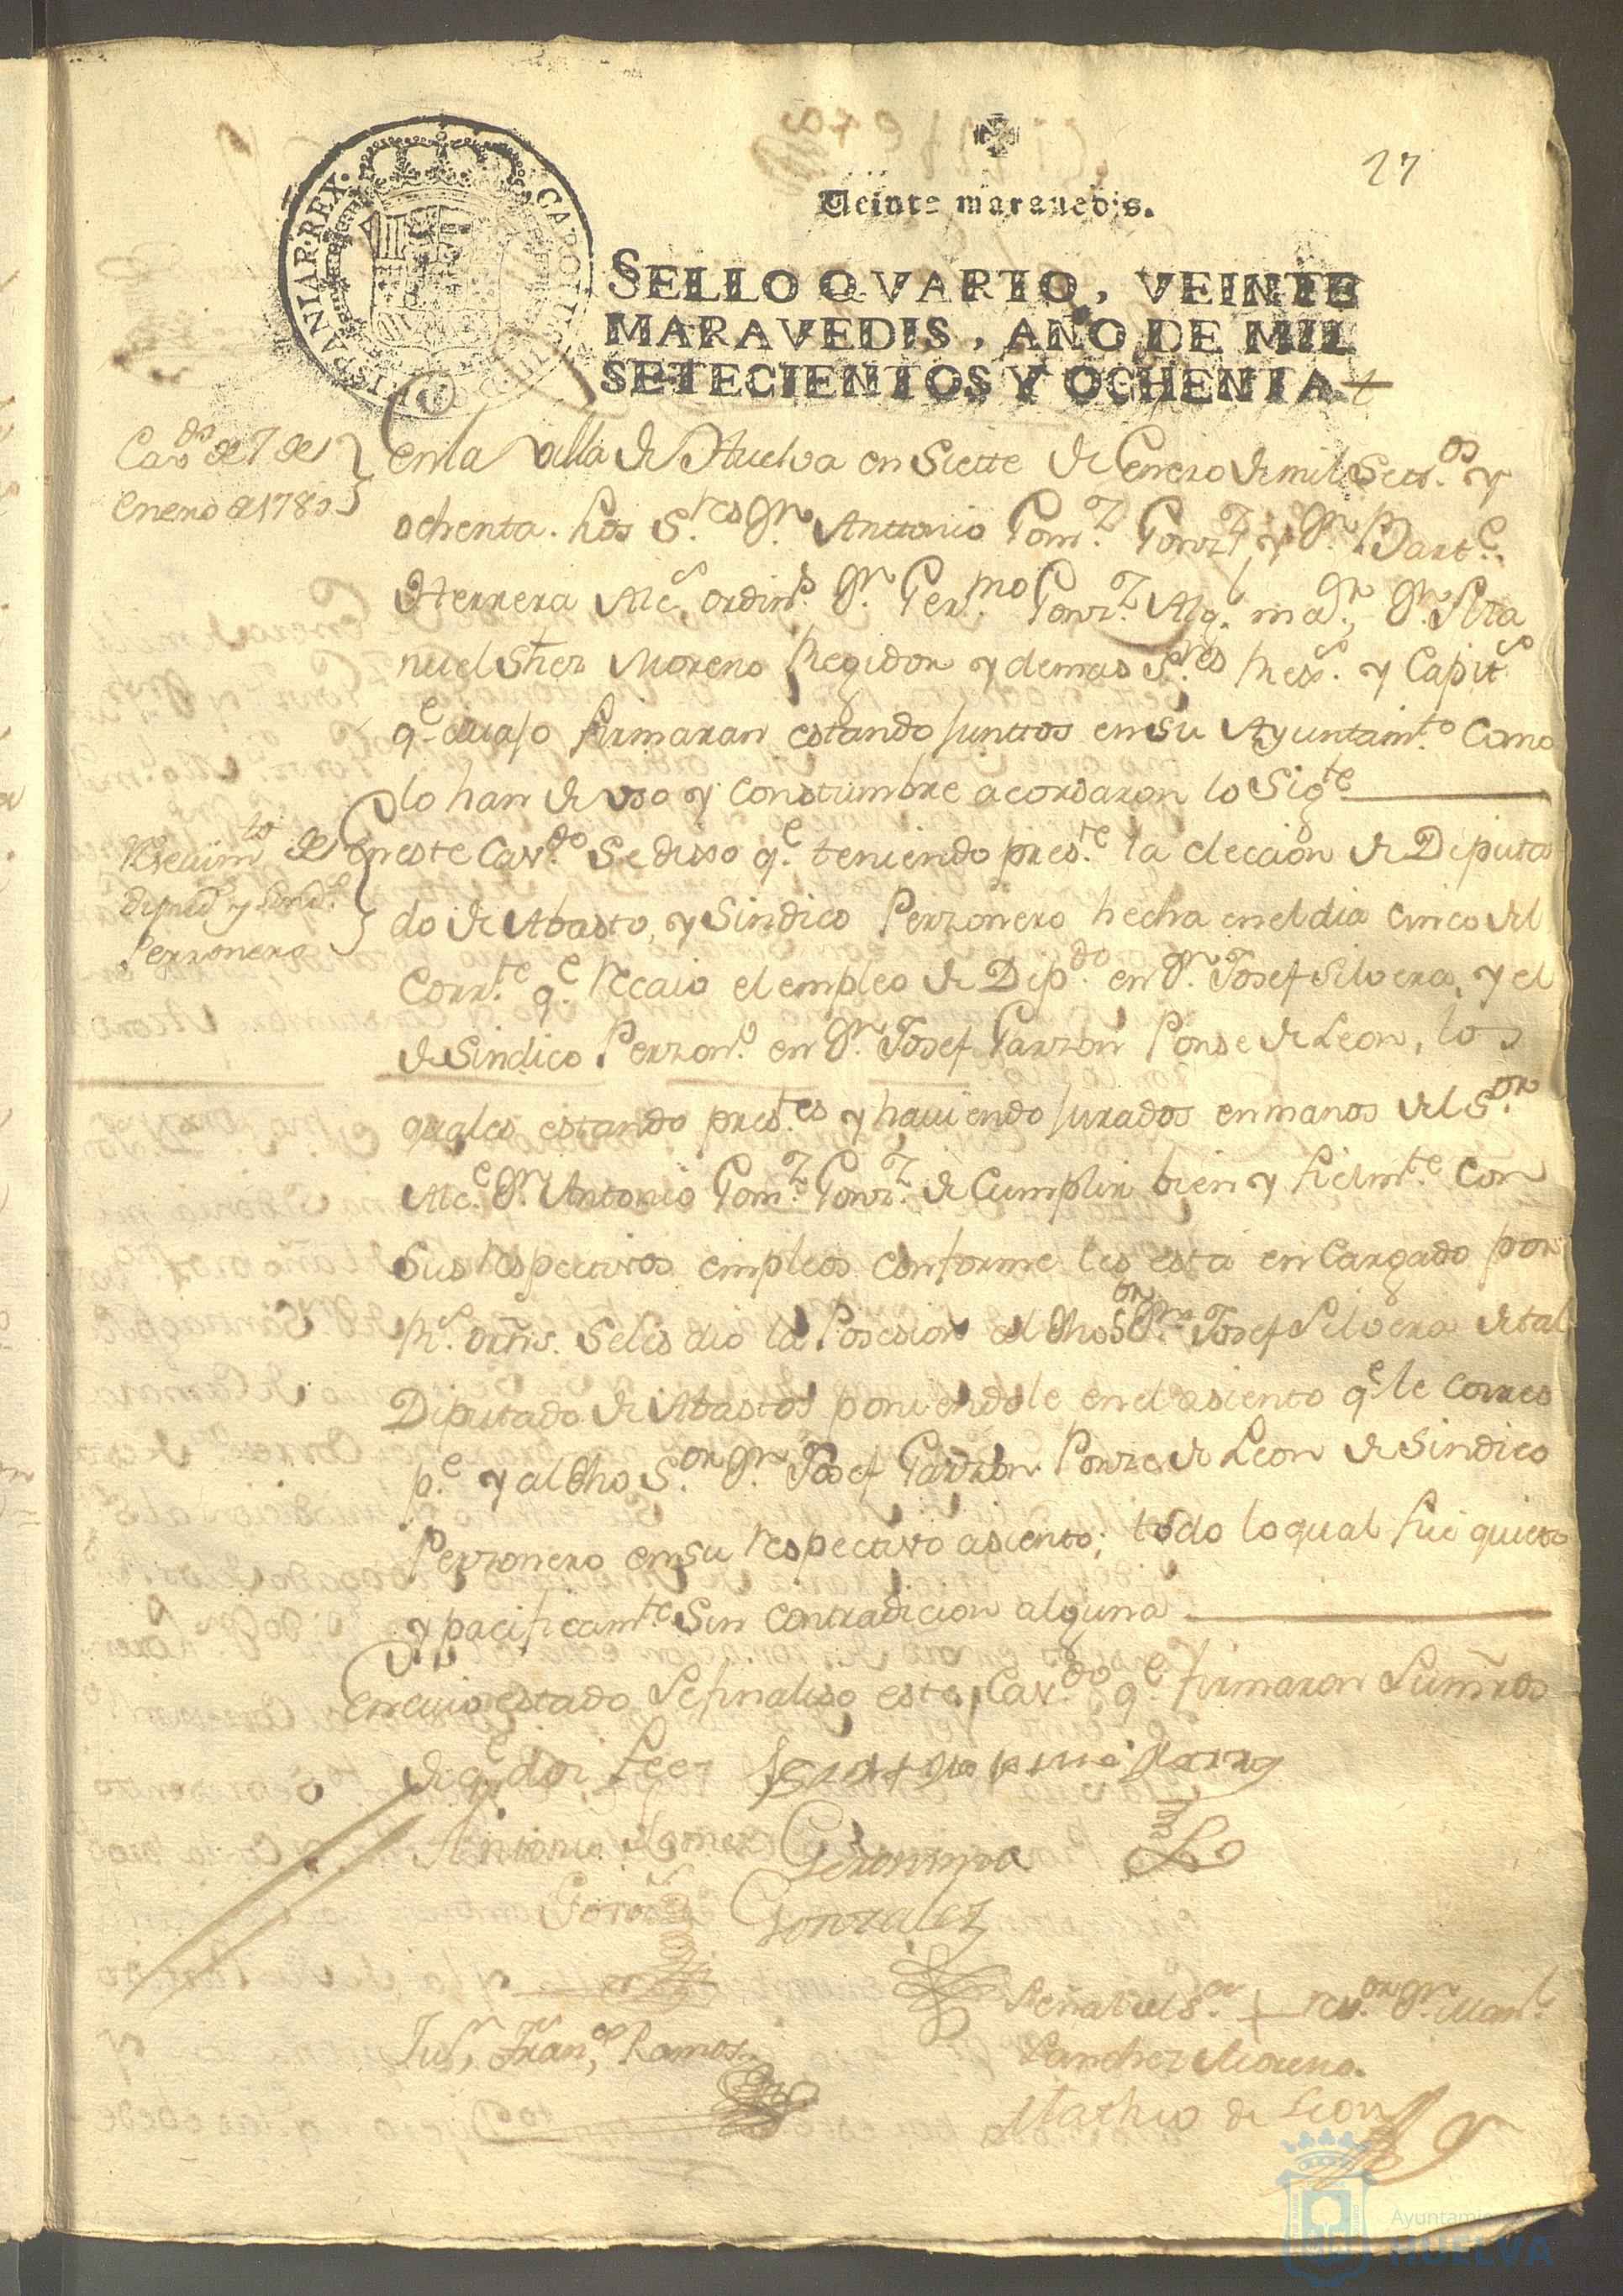 27
Veinte marauedis.
HISPANIAR·REX· CAROLUS·III·D·G·
SELLO QVARTO, VEINTE
MARAVEDIS, AÑO DE MIL
SETECIENTOS Y OCHENTA
Cavdo de 7 de
Enero de 1780
En la villa de Huelva en Siette de Enero de mil Settos y
ochenta. Los Sres Dn Anttonio Gomz Gonzz y Dn Barte
Herrera Alcs ordins Dn Germo Gonzz Alg. mar, Dn Ma
nuel Shez Moreno Regidor y demas Sres Rexs. y Capits
qe avajo firmaran estando juntos en su Ayuntamto como
lo han de uso y Constumbre acordaron lo Sigte
Reciuimto de
diputd y Sindo
Perzonero
En este Cavdo se dixo qe teniendo preste la eleccion de Diputa
do de Abasto, y Sindico Perzonero hecha en el dia cinco del
Corrte qe recaio el empleo de Dipdo en Dn Josef Silvera, y el
de Sindico Perzono en Dn Josef Garzon Ponse de Leon, los
quales estando prestes y haviendo jurados en manos del Sor
Alce Dn Antonio Gomz Gonzz de Cumplir bien y fielmte con
sus respectivos empleos conforme les esta encargado por
Rs. orñs. se les dio la Posesion al dho Sor Dn Josef Silvera de tal
Diputado de Abastos poniendole en el asiento qe le corres
pe y al dho Sor Dn Josef Garzon Ponze de Leon de Sindico
Perzonero en su respectivo asiento; todo lo qual fue quieta
y pacificamte sin contradicion alguna
En cuio estado se finaliso este Cavdo qe firmaron Sumrds
de qe doi fee
Antonio Gomez
Geronimo
Gonzalez
Señal del Sor + rexor Dn Manl
Sanchez Moreno.
Jun Franco Ramos
Mathio de Leon
Ayuntamiento
HUELVA